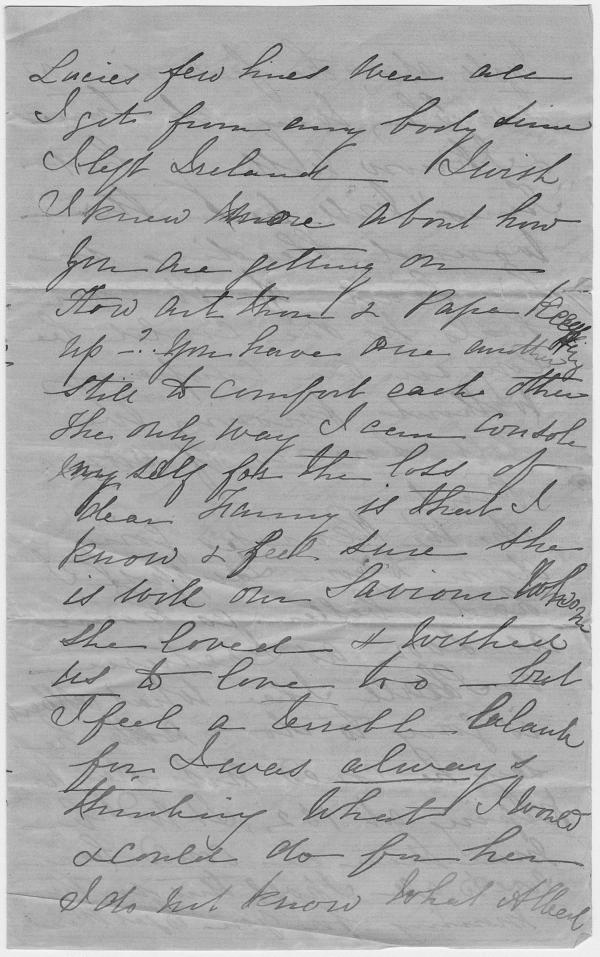 Lucies few lines were all
I got from any body since
I left Ireland I wish
I knew more about how
you are getting on
How art thou & Papa Keeping
up -? You have one another
still to comfort each other
The only way I can console
my self for the loss of
dear Fanny is that I
know & feel sure she
is with our Saviour Whom
she loved & wished
us to love too - but
I feel a terrible blank
for I was always
thinking what I would
& could do for her
I do not know what Albert